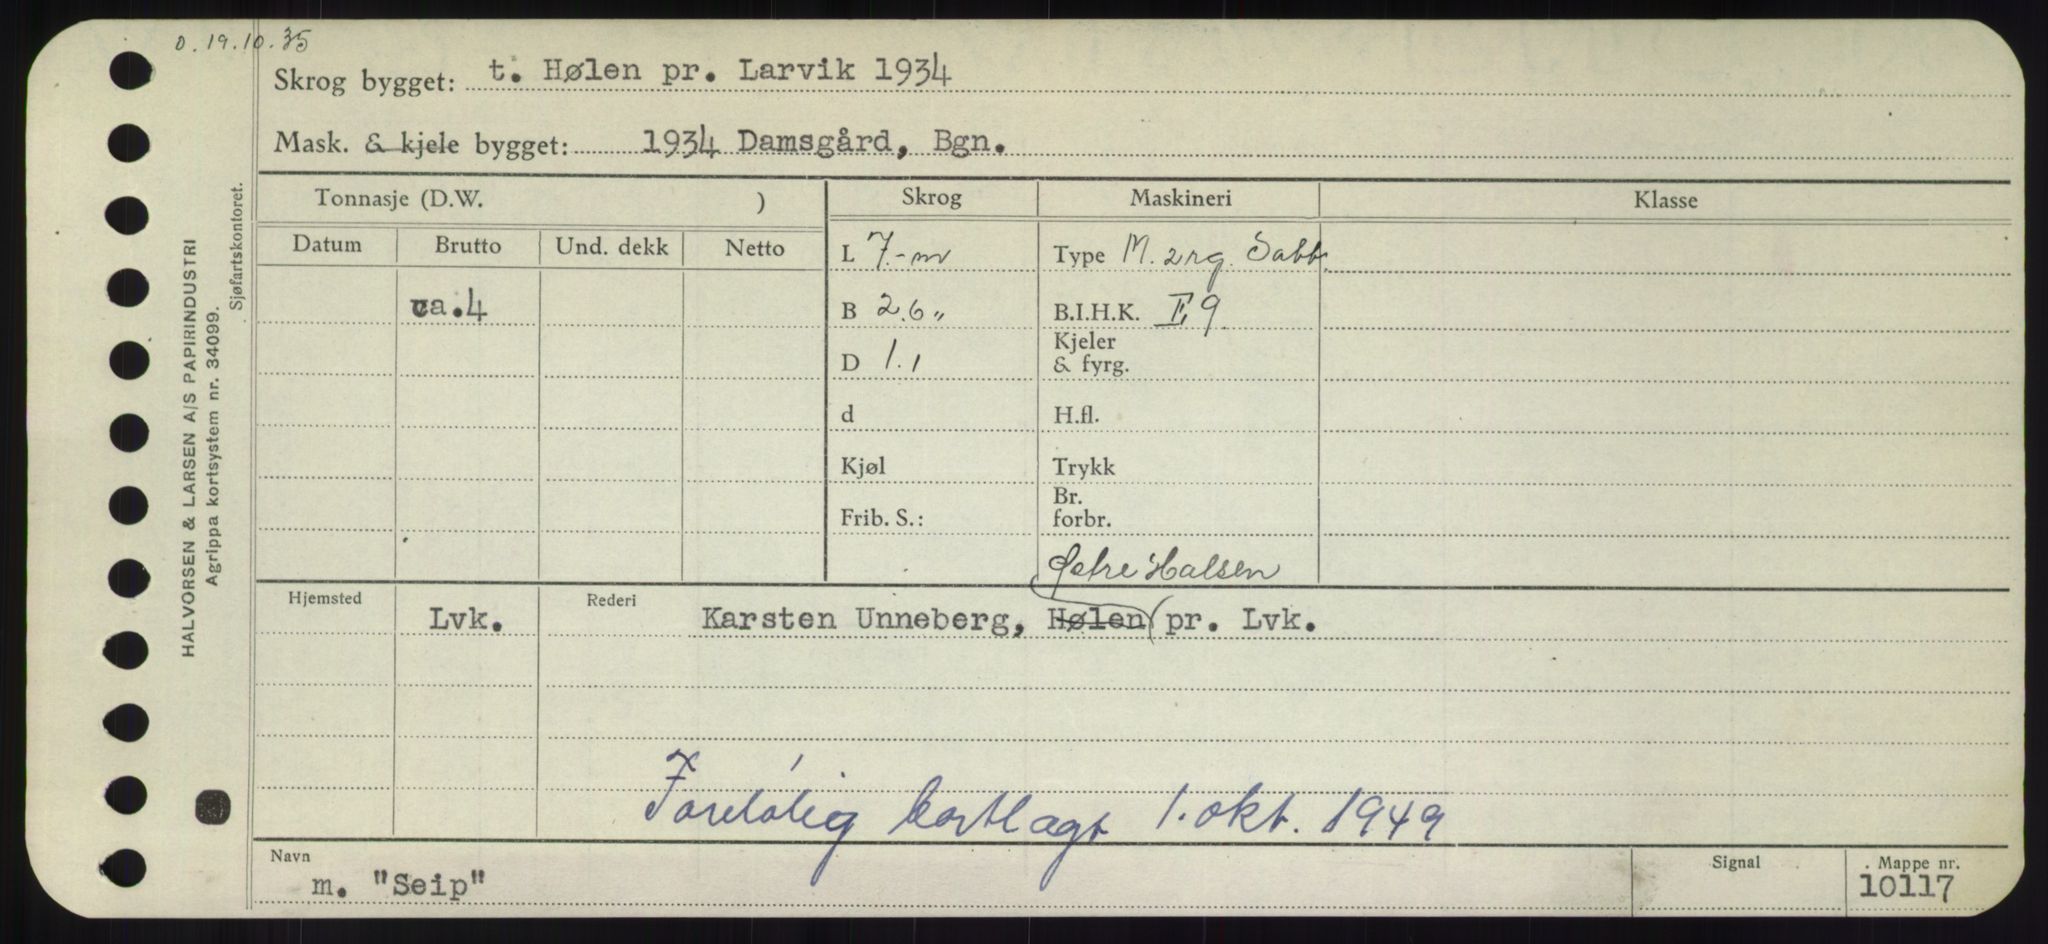 D. 19.10.35
Skrog bygget: t. Hølen pr. Larvik 1934
Mask. & kjele bygget: 1934 Damsgård, Bgn.
Tonnasje (D.W. ) Skrog Maskineri Klasse
Datum Brutto Und. dekk Netto L 7.-m Type M. 2 rg. Sabb.
ca.4 B 2.6 " B.I.H.K. I, 9
D 1.1 Kjeler
& fyrg.
d H.fl.
Kjøl Trykk
Frib. S.: Br.
forbr.
Østre Halsen
Hjemsted Lvk. Rederi Karsten Unneberg, Hølen pr. Lvk.
Foreløbig bortlagt 1. okt. 1949
Navn Signal Mappe nr.
m. "Seip" 10117
HALVORSEN & LARSEN A/S PAPIRINDUSTRI
Agrippa kortsystem nr. 34099.
Sjøfartskontoret.